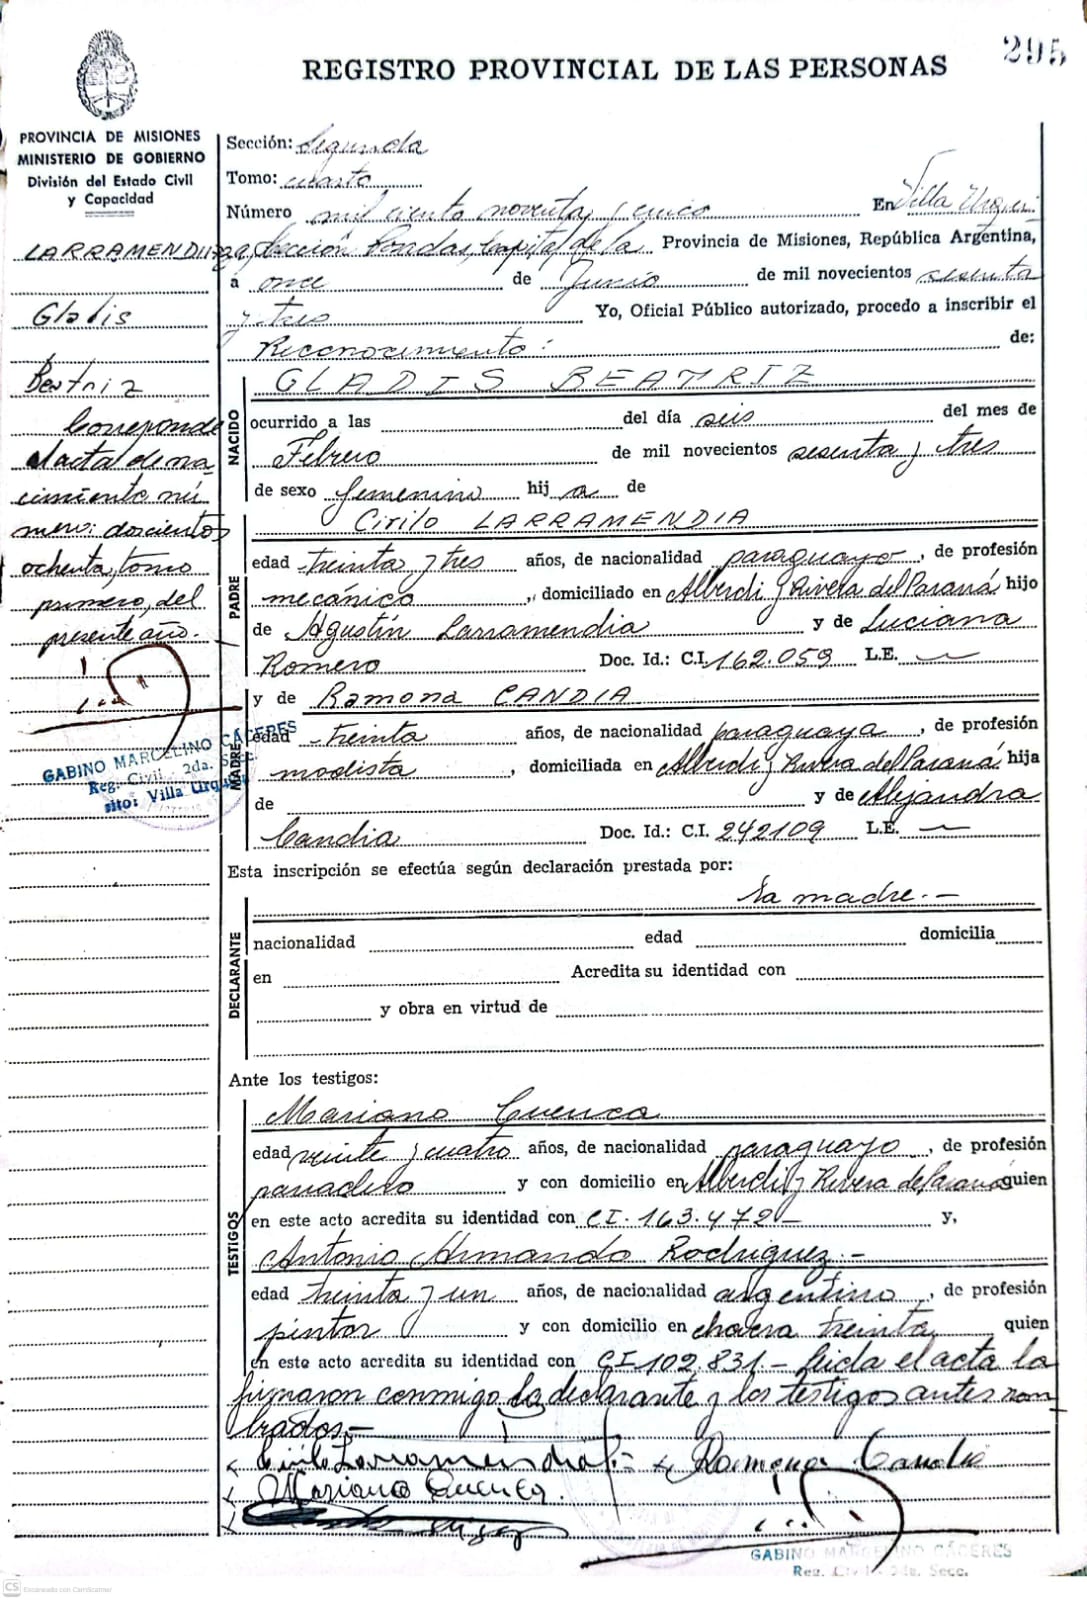 295
REGISTRO PROVINCIAL DE LAS PERSONAS
PROVINCIA DE MISIONES
MINISTERIO DE GOBIERNO
División del Estado Civil
y Capacidad
LARRAMENDIA
Gladis
Beatriz
Corresponde
al acta de na
cimiento nú
mero: doscientos
ochenta, tomo
primero, del
presente año.-
GABINO MARCELINO CACERES
Reg. Civil - 2da. Secc.
sito: Villa Urquiza
Sección: Segunda
Tomo: cuarto
Número mil ciento noventa y cinco En Villa Urqui
za, Sección Posadas, Capital de la Provincia de Misiones, República Argentina,
a once de Junio de mil novecientos sesenta
y tres Yo, Oficial Público autorizado, procedo a inscribir el
Reconocimiento: de:
NACIDO
GLADIS BEATRIZ
ocurrido a las del día seis del mes de
Febrero de mil novecientos sesenta y tres
de sexo femenino hij a de
PADRE
Cirilo LARRAMENDIA
edad treinta y tres años, de nacionalidad paraguayo, de profesión
mecánico, domiciliado en Alberdi y Rivera del Paraná hijo
de Agustín Larramendia y de Luciana
Romero Doc. Id.: C.I. 162.059 L.E. —
MADRE
y de Ramona CANDIA
edad treinta años, de nacionalidad paraguaya, de profesión
modista, domiciliada en Alberdi y Rivera del Paraná hija
de y de Alejandra
Candia Doc. Id.: C.I. 242109 L.E. —
Esta inscripción se efectúa según declaración prestada por:
DECLARANTE
la madre.-
nacionalidad edad domicilia
en Acredita su identidad con
y obra en virtud de
Ante los testigos:
TESTIGOS
Mariano Cuenca
edad veinte y cuatro años, de nacionalidad paraguayo, de profesión
panadero y con domicilio en Alberdi y Rivera del Paraná quien
en este acto acredita su identidad con CI. 163.472 - y,
Antonio Armando Rodriguez.-
edad treinta y un años, de nacionalidad argentino, de profesión
pintor y con domicilio en chacra treinta quien
en este acto acredita su identidad con CI 102.831.- Leida el acta la
firmaron conmigo la declarante y los testigos antes nom
brados.-
Cirilo Larramendia Ramona Candia
Mariano Cuenca.
GABINO MARCELINO CÁCERES
Reg. Civil - 2da. Secc.
CS Escaneado con CamScanner